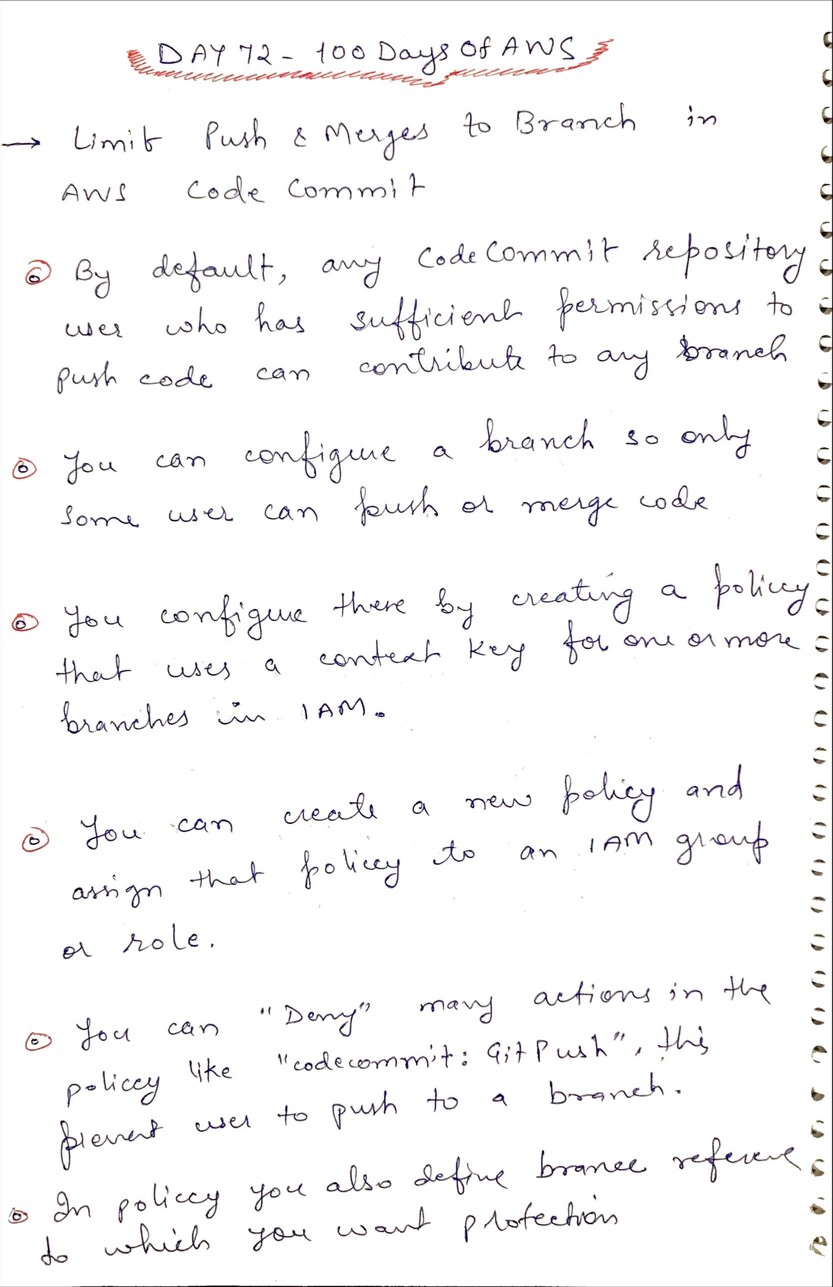 DAY 72 - 100 Days Of AWS
→ Limit Push & Merges to Branch in
AWS Code Commit
By default, any CodeCommit repository
user who has sufficient permissions to
push code can contribute to any branch
You can configure a branch so only
some user can push or merge code
You configure there by creating a policy
that uses a context key for one or more
branches in IAM.
You can create a new policy and
assign that policy to an IAM group
or role.
You can "Deny" many actions in the
policey like "codecommit: GitPush", this
prevent user to push to a branch.
In policcy you also define brance reference
to which you want protection